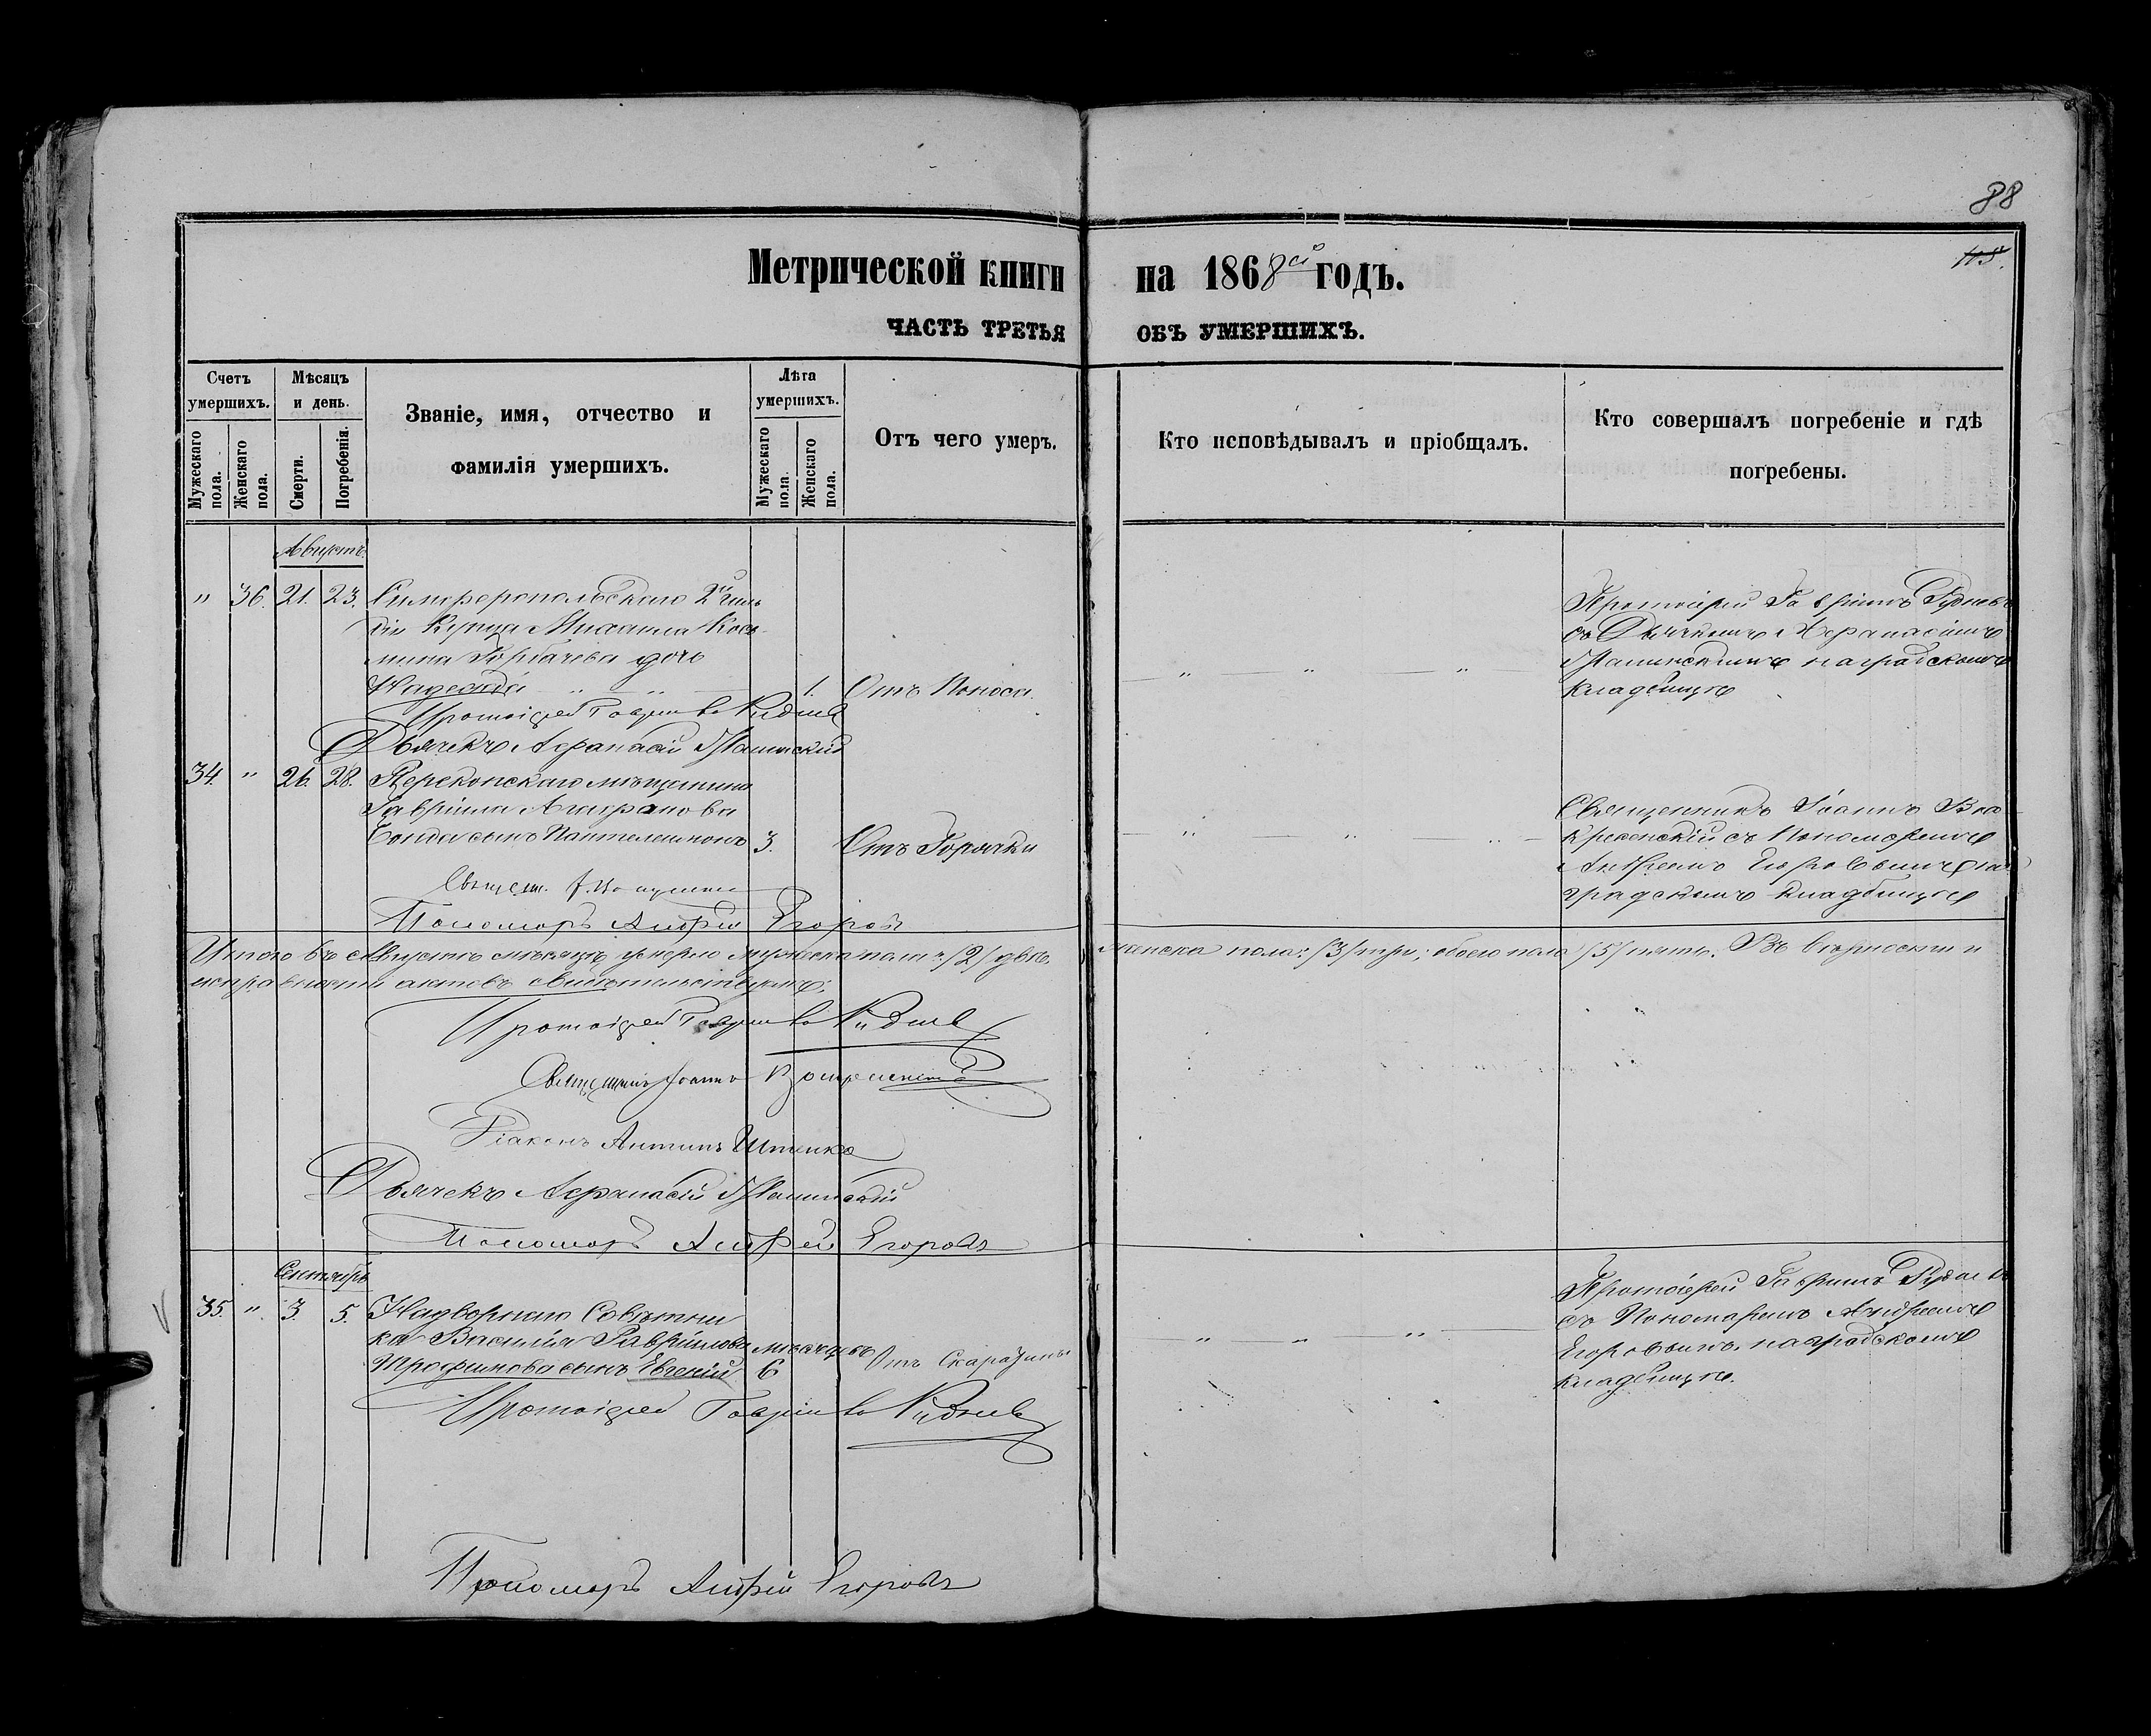 88
115.
Метрической книги на 1868й годъ.
ЧАСТЬ ТРЕТЬЯ ОБЪ УМЕРШИХЪ.
Счетъ умершихъ.
Мужескаго пола.
Женскаго пола.
Мѣсяцъ и день.
Смерти.
Погребенія.
Званіе, имя, отчество и
фамилія умершихъ.
Лѣта умершихъ.
Мужескаго пола.
Женскаго пола.
Отъ чего умеръ.
Кто исповѣдывалъ и пріобщалъ.
Кто совершалъ погребеніе и гдѣ
погребены.
Августъ
" 36. 21. 23. Симферопольскаго 2й гиль
діи Купца Михаила Кось
мина Горбачева дочь
Надежда " " 1. Отъ Поноса.
" " "
Протоіерей Гавріилъ Рудневъ
съ Дьячкомъ Афанасіемъ
на градскомъ
кладбищѣ
Протоіерей Гавріилъ Рудневъ
Дьячекъ Афанасій
34. " 26. 28. Перекопскаго мѣщанина
Гавріила Агафонова
сынъ Пантелеимонъ 3. Отъ Горячки
" " "
Священникъ Іоаннъ Вос
кресенскій съ Пономаремъ
Андреемъ Егоровымъ на
градскомъ кладбищѣ
Священ. І.
Пономарь Андрей Егоровъ
Итого въ Августѣ мѣсяцѣ умерло мужеска пола /2/ два. женска пола: /3/ три; обоего пола /5/ пять. Въ вѣрности и
исправности актовъ свидѣтельствуемъ:
Протоіерей Гавріилъ Рудневъ
Священникъ Іоаннъ Воскресенскій
Діаконъ Антипъ
Дьячекъ Афанасій
Пономарь Андрей Егоровъ
Сентябрь
35. " 3. 5. Надворнаго Совѣтни
ка Василія Гаврилова мѣсяцевъ
Трофимова сынъ Евгеній 6 Отъ Скарлатины
" " "
Протоіерей Гавріилъ Рудневъ
съ Пономаремъ Андреемъ
Егоровымъ на градскомъ
кладбищѣ.
Протоіерей Гавріилъ Рудневъ
Пономарь Андрей Егоровъ